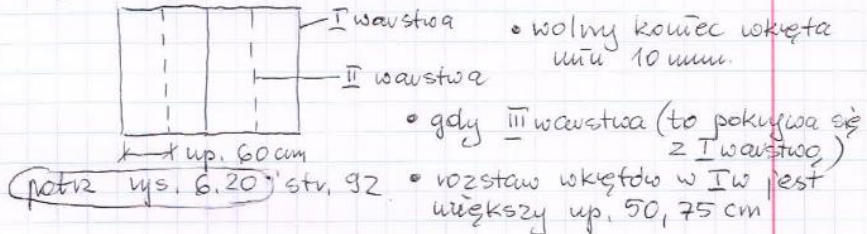 I warstwa
II warstwa
np. 60 cm
patrz rys. 6.20 str. 92
• wolny koniec wkręta
min 10 mm.
• gdy III warstwa (to pokrywa się
z I warstwą)
• rozstaw wkrętów w I w jest
większy np. 50, 75 cm